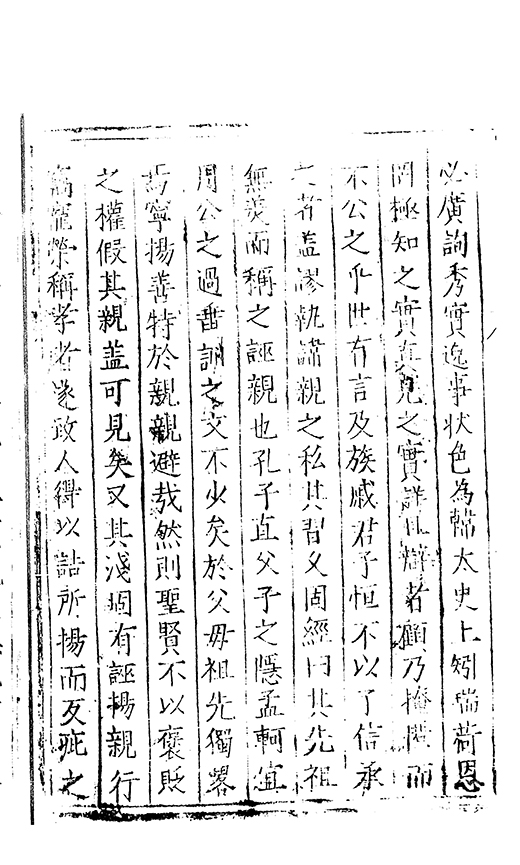 必廣詢秀實逸事状色為韓太史上矧瑞荷恩
罔極知之實真見之實詳且辯者顧乃掩惟而
不公之乎世有言及族戚君子恒不以了信承
者盖謬執諱親之私其習久固經曰其先祖
無羙而稱之誣親也孔子直父子之隱孟軻宜
周公之過晋訓之文不少矣於父毋祖先獨畧
寧揚善特於親親避㢤然則聖賢不以褒貶
之權假其親盖可見矣又其淺凅有誣揚親行
為寵榮稱孝者遂致人得以詰所揚而反疵之